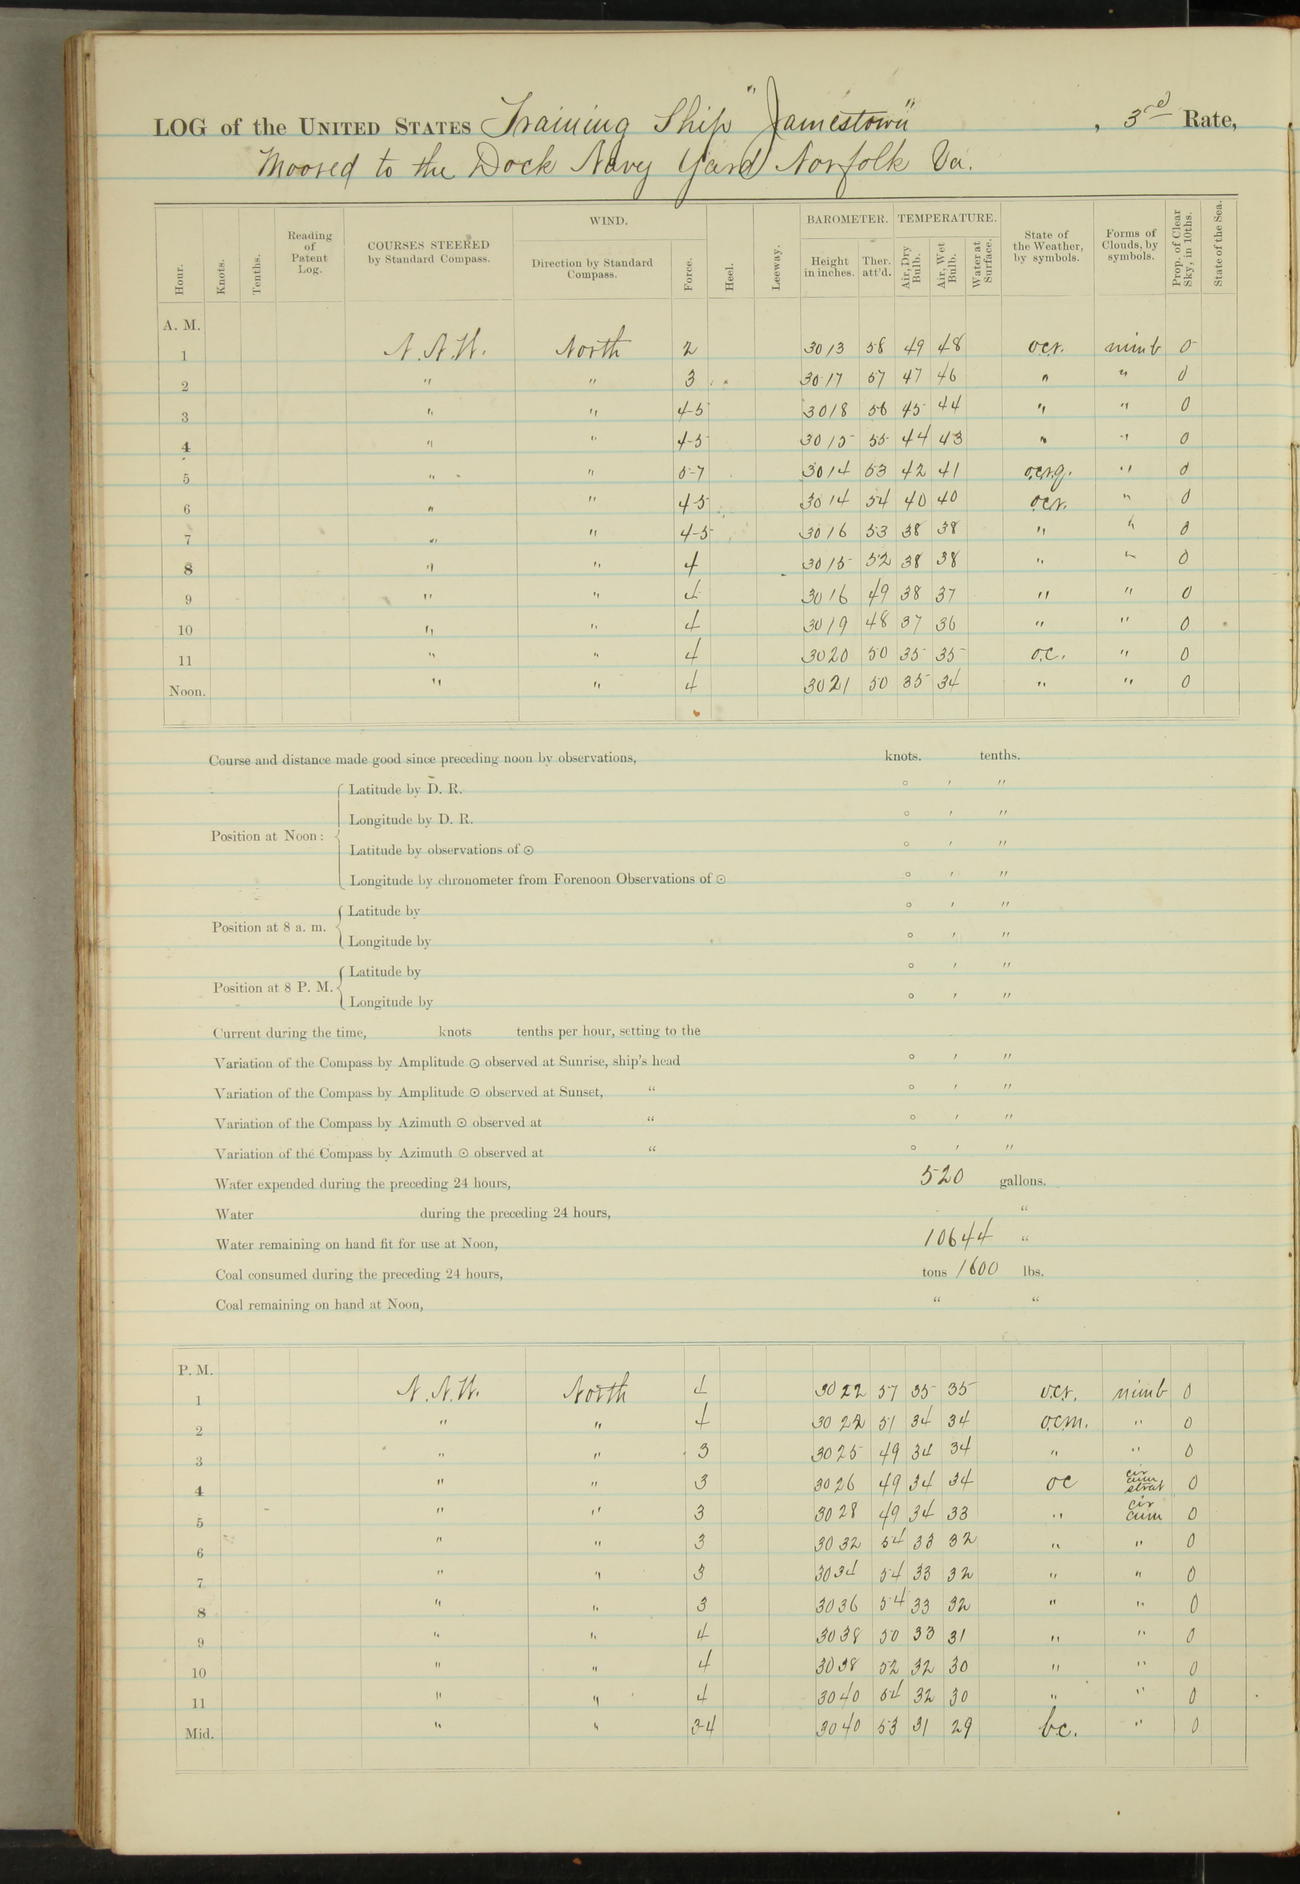 LOG of the UNITED STATES Training Ship "Jamestown", 3rd Rate,
Moored to the Dock Navy Yard Norfolk Va.
WIND. BAROMETER. TEMPERATURE.
Hour. Knots. Tenths. Reading of Patent Log. COURSES STEERED by Standard Compass. Direction by Standard Compass. Force. Heel. Leeway. Height in inches. Ther. att'd. Air, Dry Bulb. Air, Wet Bulb. Water at Surface. State of the Weather, by symbols. Forms of Clouds, by symbols. Prop. of Clear Sky, in 10ths. State of the Sea.
A. M.
1 N.N.W. North 2 30 13 58 49 48 o.c.r. nimb 0
2 " " 3 30 17 57 47 46 " " 0
3 " " 4-5 30 18 56 45 44 " " 0
4 " " 4-5 30 15 55 44 43 " " 0
5 " " 5-7 30 14 53 42 41 o.c.r.q. " 0
6 " " 4-5 30 14 54 40 40 o.c.r. " 0
7 " " 4-5 30 16 53 38 38 " " 0
8 " " 4 30 15 52 38 38 " " 0
9 " " 4 30 16 49 38 37 " " 0
10 " " 4 30 19 48 37 36 " " 0
11 " " 4 30 20 50 35 35 o.c. " 0
Noon. " " 4 30 21 50 35 34 " " 0
Course and distance made good since preceding noon by observations, knots. tenths.
Latitude by D. R. ° ′ ″
Longitude by D. R. ° ′ ″
Position at Noon:
Latitude by observations of ☉ ° ′ ″
Longitude by chronometer from Forenoon Observations of ☉ ° ′ ″
Latitude by ° ′ ″
Position at 8 a. m.
Longitude by ° ′ ″
Latitude by ° ′ ″
Position at 8 P. M.
Longitude by ° ′ ″
Current during the time, knots tenths per hour, setting to the
Variation of the Compass by Amplitude ☉ observed at Sunrise, ship's head ° ′ ″
Variation of the Compass by Amplitude ☉ observed at Sunset, " ° ′ ″
Variation of the Compass by Azimuth ☉ observed at " ° ′ ″
Variation of the Compass by Azimuth ☉ observed at " ° ′ ″
Water expended during the preceding 24 hours, 520 gallons.
Water during the preceding 24 hours, "
Water remaining on hand fit for use at Noon, 10644 "
Coal consumed during the preceding 24 hours, tons 1600 lbs.
Coal remaining on hand at Noon, " "
P. M.
1 N.N.W. North 4 30 22 57 35 35 o.c.r. nimb 0
2 " " 4 30 22 51 34 34 o.c.m. " 0
3 " " 3 30 25 49 34 34 " " 0
4 " " 3 30 26 49 34 34 oc cir cum strat 0
5 " " 3 30 28 49 34 33 " cir cum 0
6 " " 3 30 32 54 33 32 " " 0
7 " " 3 30 34 54 33 32 " " 0
8 " " 3 30 36 54 33 32 " " 0
9 " " 4 30 38 50 33 31 " " 0
10 " " 4 30 38 52 32 30 " " 0
11 " " 4 30 40 54 32 30 " " 0
Mid. " " 3-4 30 40 53 31 29 bc. " 0